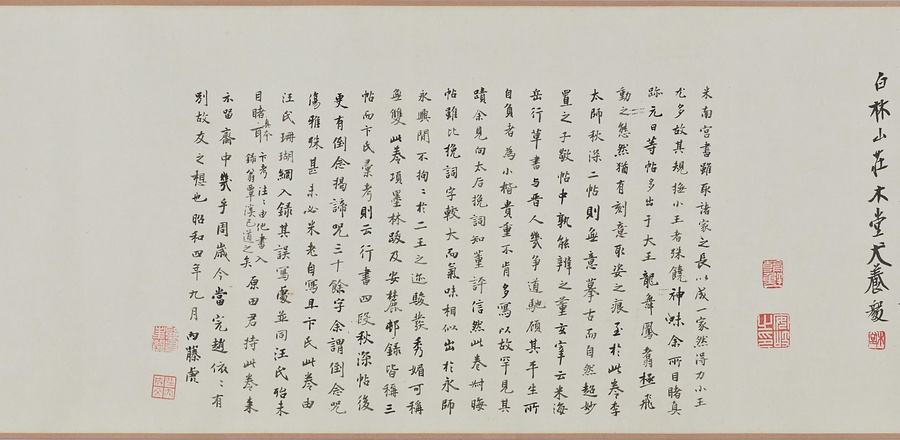 白林山莊木堂犬養毅
米南宮書雖取諸家之長以成一家然得力小王
尤多故其規撫小王者殊饒神味余所目睹真
跡元日等帖多出于大王龍舞鳳翥極飛
動之態然猶有刻意取姿之痕至於此卷李
太師秋深二帖則無意摹古而自然超妙
置之子敬帖中孰能辨之董玄宰云米海
岳行草書与晋人幾爭道馳頋其平生所
自負者為小楷貴重不肯多寫以故罕見其
蹟余見向太后挽詞知董許信然此卷附晦
帖雖比挽詞字較大而氣味相似出於永師
永興閒不拘〻於二王之迹駿發秀媚可稱
無雙此卷項墨林跋及安麓邨錄皆稱三
帖而卞氏彙考則云行書四段秋深帖後
更有倒念揭諦呪三十餘字余謂倒念呪
傷雅殊甚未必米老自寫且卞氏此卷由
汪氏珊瑚網入錄其誤寫處並同汪氏殆未
目睹真本耳卞考注〻由他書入錄翁覃溪已道之矣原田君持此卷来
示留齋中幾乎周歲今當完趙依〻有
別故友之想也昭和四年九月 内藤虎